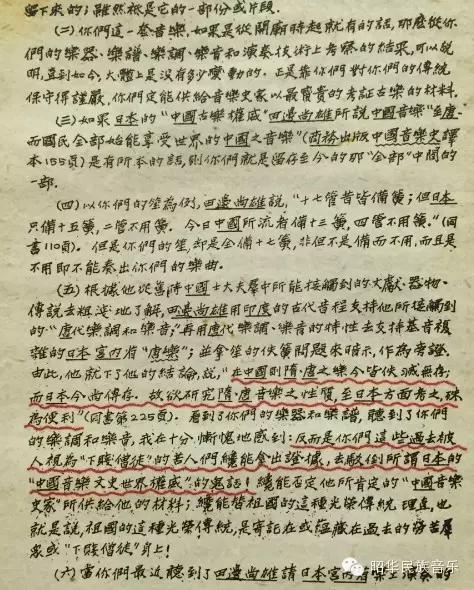 留下来的；雖然祇是它的一部份或片段.
(二) 你們這一套音樂, 如果是從開廟時起就有的話, 那麽從你
們的樂器、樂譜、樂調、樂音和演奏技術上考察的結果, 可以說
明, 直到如今, 大體上是没有多少變動的. 正是靠你們對你們的傳統
保守得謹嚴, 你們定能供給音樂史家以最寶貴的考証古樂的材料.
(三) 如果日本的"中國古樂權威"田邊尚雄所說中國音樂"至唐
而國民全部始能享受世界的中國之音樂"(商務出版中國音樂史譯
本155頁)是有所本的話, 則你們就是留存至今的那"全部"中間的
一部.
(四) 以你們的笙為例, 田邊尚雄說, "十七管昔皆備簧；但日本
只備十五簧, 二管不用簧. 今日中國所流者備十三簧, 四管不用簧."(同
書110頁). 但是你們的笙, 却是全備十七簧, 非但不是備而不用, 而且是
不用即不能奏出你們的樂曲.
(五) 根據他從舊時中國士大夫羣中所能接觸到的文獻、器物、
傳說去粗淺地了解, 田邊尚雄用印度的古代音程支持他所接觸到
的"唐代樂調和樂音", 再用唐代樂調、樂音的特性去支持基音複
雜的日本宮内府"唐樂"；並拿笙的佚簧問題來暗示, 作為旁證.
由此, 他就下了他的結論, 說, "在中國則隋·唐之樂今皆佚滅無存,
而日本今尚傳存. 故欲研究隋·唐音樂之性質, 至日本方面考之, 殊
為便利"(同書第225頁). 看到了你們的樂器和樂譜, 聽到了你們
的樂調和樂音, 我在十分慚愧地感到：反而是你們這些過去被
人視為"下賤僧徒"的苦人們纔能拿出證據, 去駁倒所謂日本的
"中國音樂文史世界權威"的鬼話！纔能否定他所肯定的"中國音樂
史家"所供給他的材料；纔能替祖國的這種光榮傳統理直, 也
就是說, 祖國的這種光榮傳統, 是寄託在或蕴藏在過去的勞苦羣
衆或"下賤僧徒"身上！
(六) 當你們最近聽到了田邊尚雄請日本宮内府樂工演奏的
昭华民族音乐